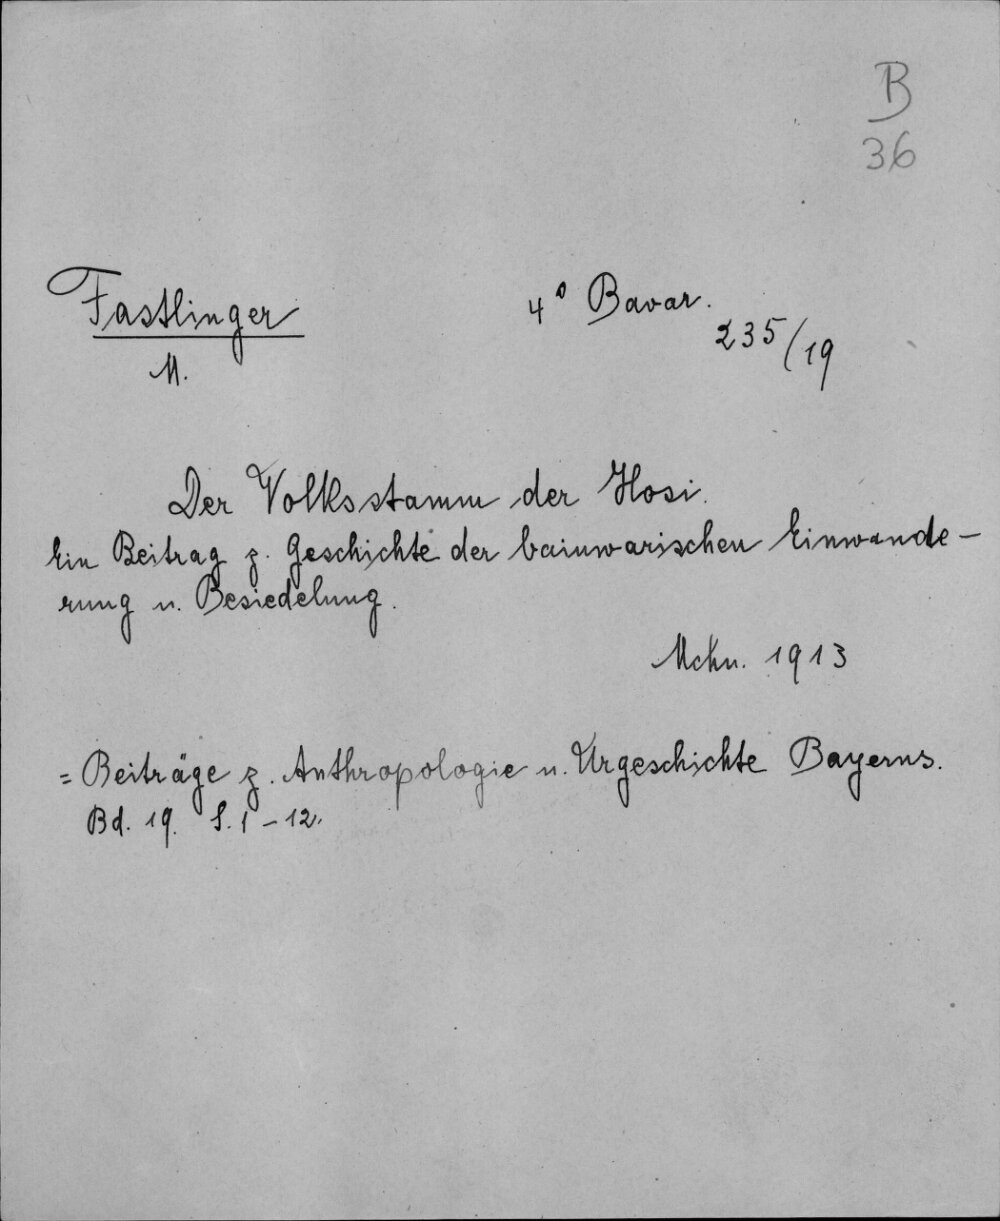 B
36
Fastlinger
M.
4° Bavar.
235/19
Der Volksstamm der Hosi.
Ein Beitrag z. Geschichte der bainwarischen Einwande-
rung u. Besiedelung.
Mchn. 1913
= Beiträge z. Anthropologie u. Urgeschichte Bayerns.
Bd. 19. S. 1-12.